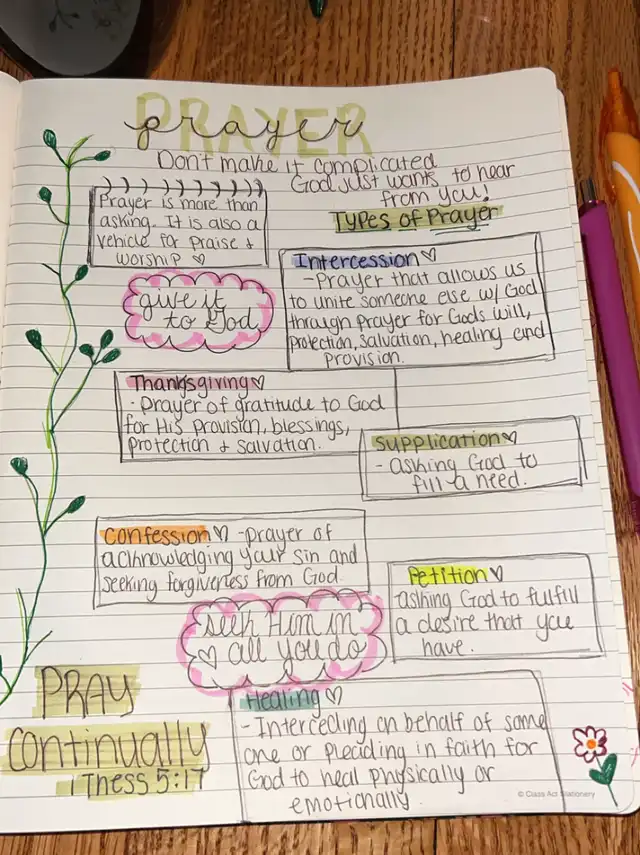 PRAYER
prayer
Don't make it complicated
God just wants to hear
from you!
Prayer is more than
asking. It is also a
vehicle for praise +
worship ♡
Types of Prayer
Intercession ♡
- Prayer that allows us
to unite someone else w/ God
through prayer for Gods will,
protection, salvation, healing and
provision.
give it
to God
Thanksgiving ♡
- Prayer of gratitude to God
for His provision, blessings,
protection + salvation.
Supplication ♡
- asking God to
fill a need.
Confession ♡ - prayer of
acknowledging your sin and
seeking forgiveness from God.
Petition ♡
asking God to fulfill
a desire that you
have.
seek Him in
♡ all you do
PRAY
continually
1 Thess 5:17
Healing ♡
- Interceding on behalf of some
one or pleading in faith for
God to heal physically or
emotionally.
© Class Act Stationery